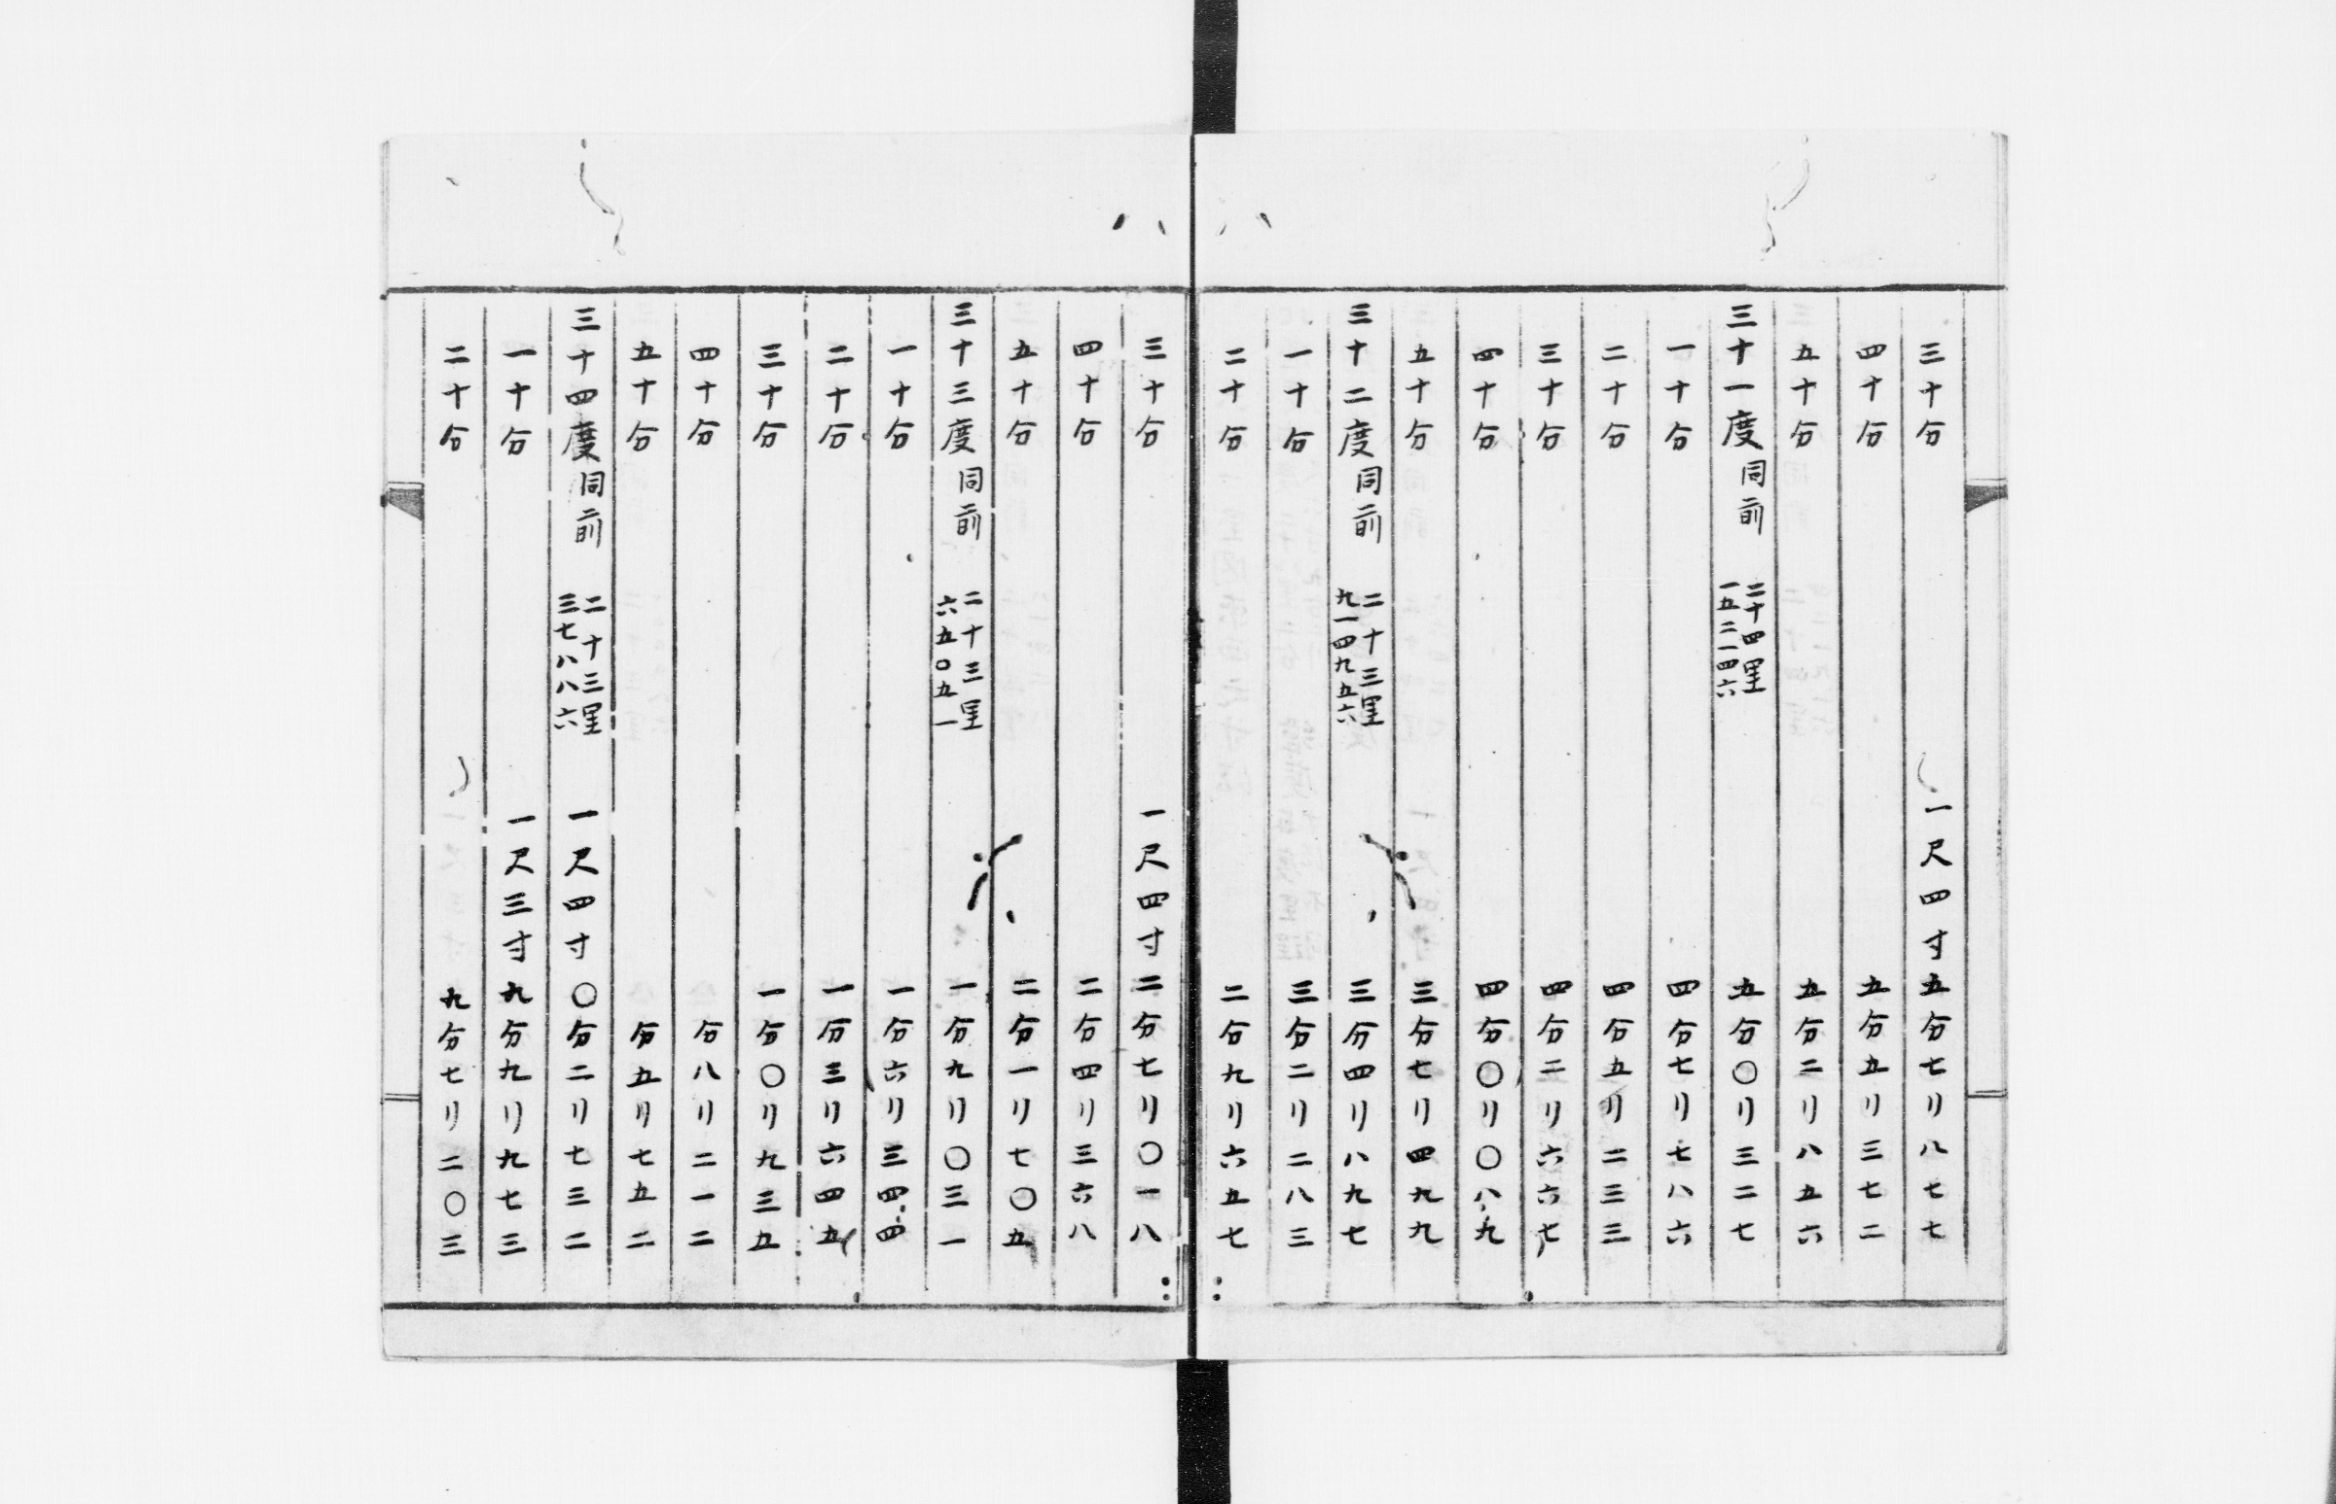 三十分 一尺四寸五分七リ八七七
四十分 五分五リ三七二
五十分 五分二リ八五六
三十一度同前 二十四里 一五二一四六 五分〇リ三二七
一十分 四分七リ七八六
二十分 四分五リ二三三
三十分 四分二リ六六七
四十分 四分〇リ〇八九
五十分 三分七リ四九九
三十二度同前 二十三里 九一四九五六 三分四リ八九七
一十分 三分二リ二八三
二十分 二分九リ六五七
三十分 一尺四寸二分七リ〇一八
四十分 二分四リ三六八
五十分 二分一リ七〇五
三十三度同前 二十三里 六五〇五一 一分九リ〇三一
一十分 一分六リ三四四
二十分 一分三リ六四五
三十分 一分〇リ九三五
四十分 分八リ二一二
五十分 分五リ七五二
三十四度同前 二十三里 三七八八六 一尺四寸〇分二リ七三二
一十分 一尺三寸九分九リ九七三
二十分 九分七リ二〇三